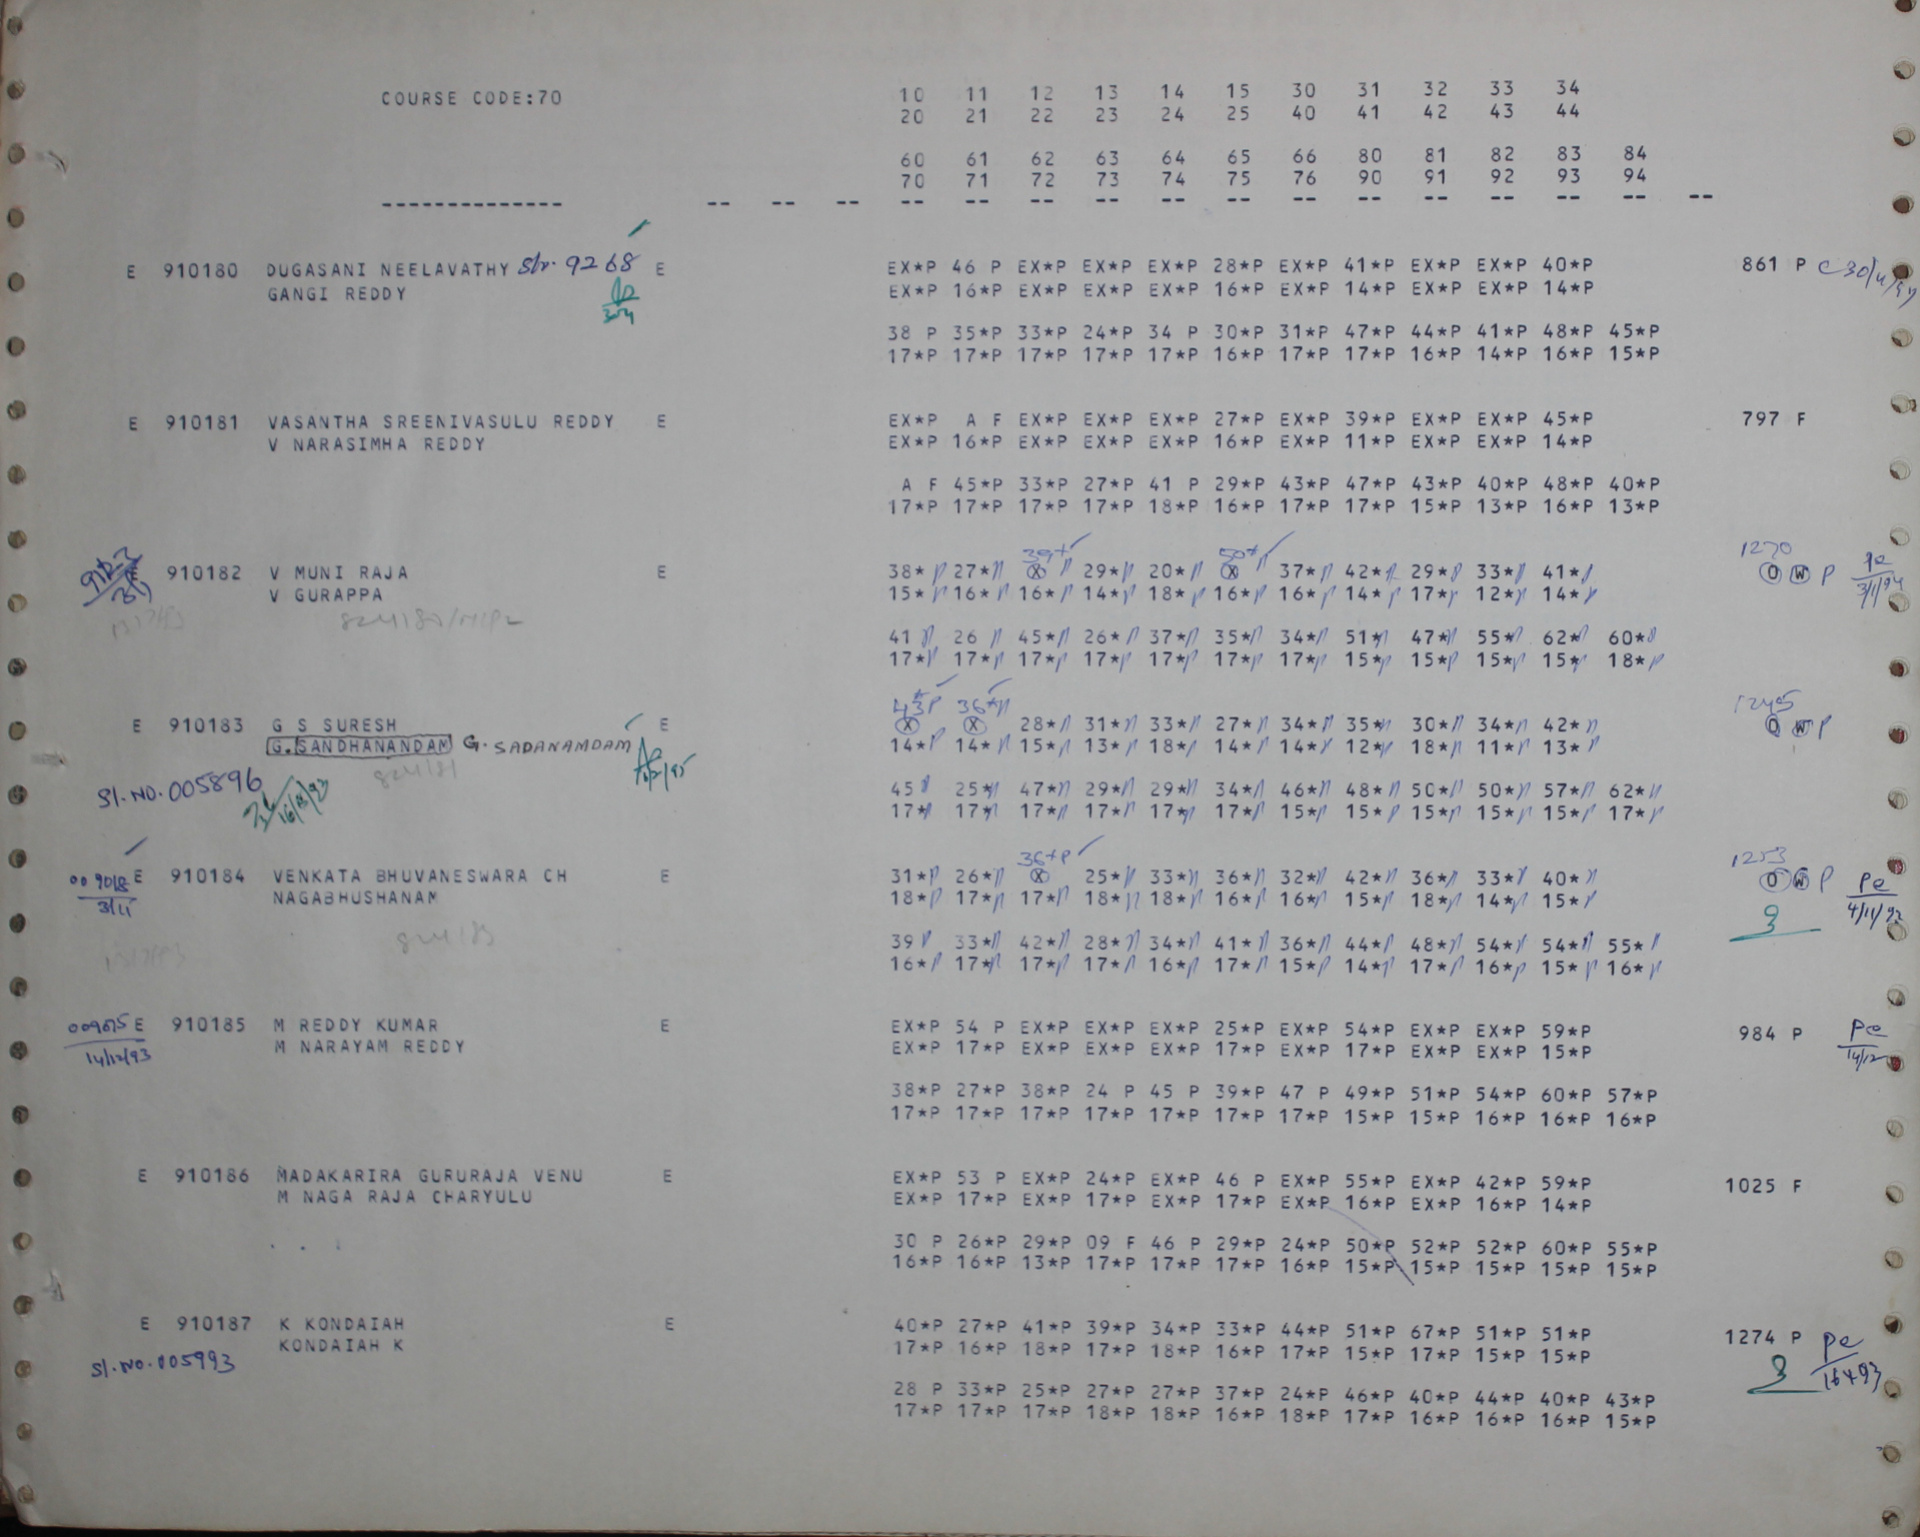 COURSE CODE:70 10 11 12 13 14 15 30 31 32 33 34
20 21 22 23 24 25 40 41 42 43 44
60 61 62 63 64 65 66 80 81 82 83 84
70 71 72 73 74 75 76 90 91 92 93 94
-------------- -- -- -- -- -- -- -- -- -- -- -- -- -- -- -- --
E 910180 DUGASANI NEELAVATHY 9268 E EX*P 46 P EX*P EX*P EX*P 28*P EX*P 41*P EX*P EX*P 40*P 861 P
GANGI REDDY EX*P 16*P EX*P EX*P EX*P 16*P EX*P 14*P EX*P EX*P 14*P
38 P 35*P 33*P 24*P 34 P 30*P 31*P 47*P 44*P 41*P 48*P 45*P
17*P 17*P 17*P 17*P 17*P 16*P 17*P 17*P 16*P 14*P 16*P 15*P
E 910181 VASANTHA SREENIVASULU REDDY E EX*P A F EX*P EX*P EX*P 27*P EX*P 39*P EX*P EX*P 45*P 797 F
V NARASIMHA REDDY EX*P 16*P EX*P EX*P EX*P 16*P EX*P 11*P EX*P EX*P 14*P
A F 45*P 33*P 27*P 41 P 29*P 43*P 47*P 43*P 40*P 48*P 40*P
17*P 17*P 17*P 17*P 18*P 16*P 17*P 17*P 15*P 13*P 16*P 13*P
39* 50* 1270
910182 V MUNI RAJA E 38*P 27*P X P 29*P 20*P X 37*P 42*P 29*P 33*P 41*P 0 W P
V GURAPPA 15*P 16*P 16*P 14*P 18*P 16*P 16*P 14*P 17*P 12*P 14*P 3/1/94
41 P 26 P 45*P 26*P 37*P 35*P 34*P 51*P 47*P 55*P 62*P 60*P
17*P 17*P 17*P 17*P 17*P 17*P 17*P 15*P 15*P 15*P 15*P 18*P
43*P 36*P 1245
E 910183 G S SURESH E X X 28*P 31*P 33*P 27*P 34*P 35*P 30*P 34*P 42*P 0 W P
G.SANDHANANDAM G. SADANAMDAM 14*P 14*P 15*P 13*P 18*P 14*P 14*P 12*P 18*P 11*P 13*P
824181
Sl.NO.005896 45 P 25*P 47*P 29*P 29*P 34*P 46*P 48*P 50*P 50*P 57*P 62*P
16/8/93 17*P 17*P 17*P 17*P 17*P 17*P 15*P 15*P 15*P 15*P 15*P 17*P
36*P 1253
009018 E 910184 VENKATA BHUVANESWARA CH E 31*P 26*P X 25*P 33*P 36*P 32*P 42*P 36*P 33*P 40*P 0 W P Pe
3/11 NAGABHUSHANAM 18*P 17*P 17*P 18*P 18*P 16*P 16*P 15*P 18*P 14*P 15*P
39 P 33*P 42*P 28*P 34*P 41*P 36*P 44*P 48*P 54*P 54*P 55*P
16*P 17*P 17*P 17*P 16*P 17*P 15*P 14*P 17*P 16*P 15*P 16*P
E 910185 M REDDY KUMAR E EX*P 54 P EX*P EX*P EX*P 25*P EX*P 54*P EX*P EX*P 59*P 984 P Pe
14/12/93 M NARAYAM REDDY EX*P 17*P EX*P EX*P EX*P 17*P EX*P 17*P EX*P EX*P 15*P 14/12
38*P 27*P 38*P 24 P 45 P 39*P 47 P 49*P 51*P 54*P 60*P 57*P
17*P 17*P 17*P 17*P 17*P 17*P 17*P 15*P 15*P 16*P 16*P 16*P
E 910186 MADAKARIRA GURURAJA VENU E EX*P 53 P EX*P 24*P EX*P 46 P EX*P 55*P EX*P 42*P 59*P 1025 F
M NAGA RAJA CHARYULU EX*P 17*P EX*P 17*P EX*P 17*P EX*P 16*P EX*P 16*P 14*P
30 P 26*P 29*P 09 F 46 P 29*P 24*P 50*P 52*P 52*P 60*P 55*P
16*P 16*P 13*P 17*P 17*P 17*P 16*P 15*P 15*P 15*P 15*P 15*P
E 910187 K KONDAIAH E 40*P 27*P 41*P 39*P 34*P 33*P 44*P 51*P 67*P 51*P 51*P 1274 P Pe
KONDAIAH K 17*P 16*P 18*P 17*P 18*P 16*P 17*P 15*P 17*P 15*P 15*P
Sl.NO.005993 28 P 33*P 25*P 27*P 27*P 37*P 24*P 46*P 40*P 44*P 40*P 43*P
17*P 17*P 17*P 18*P 18*P 16*P 18*P 17*P 16*P 16*P 16*P 15*P